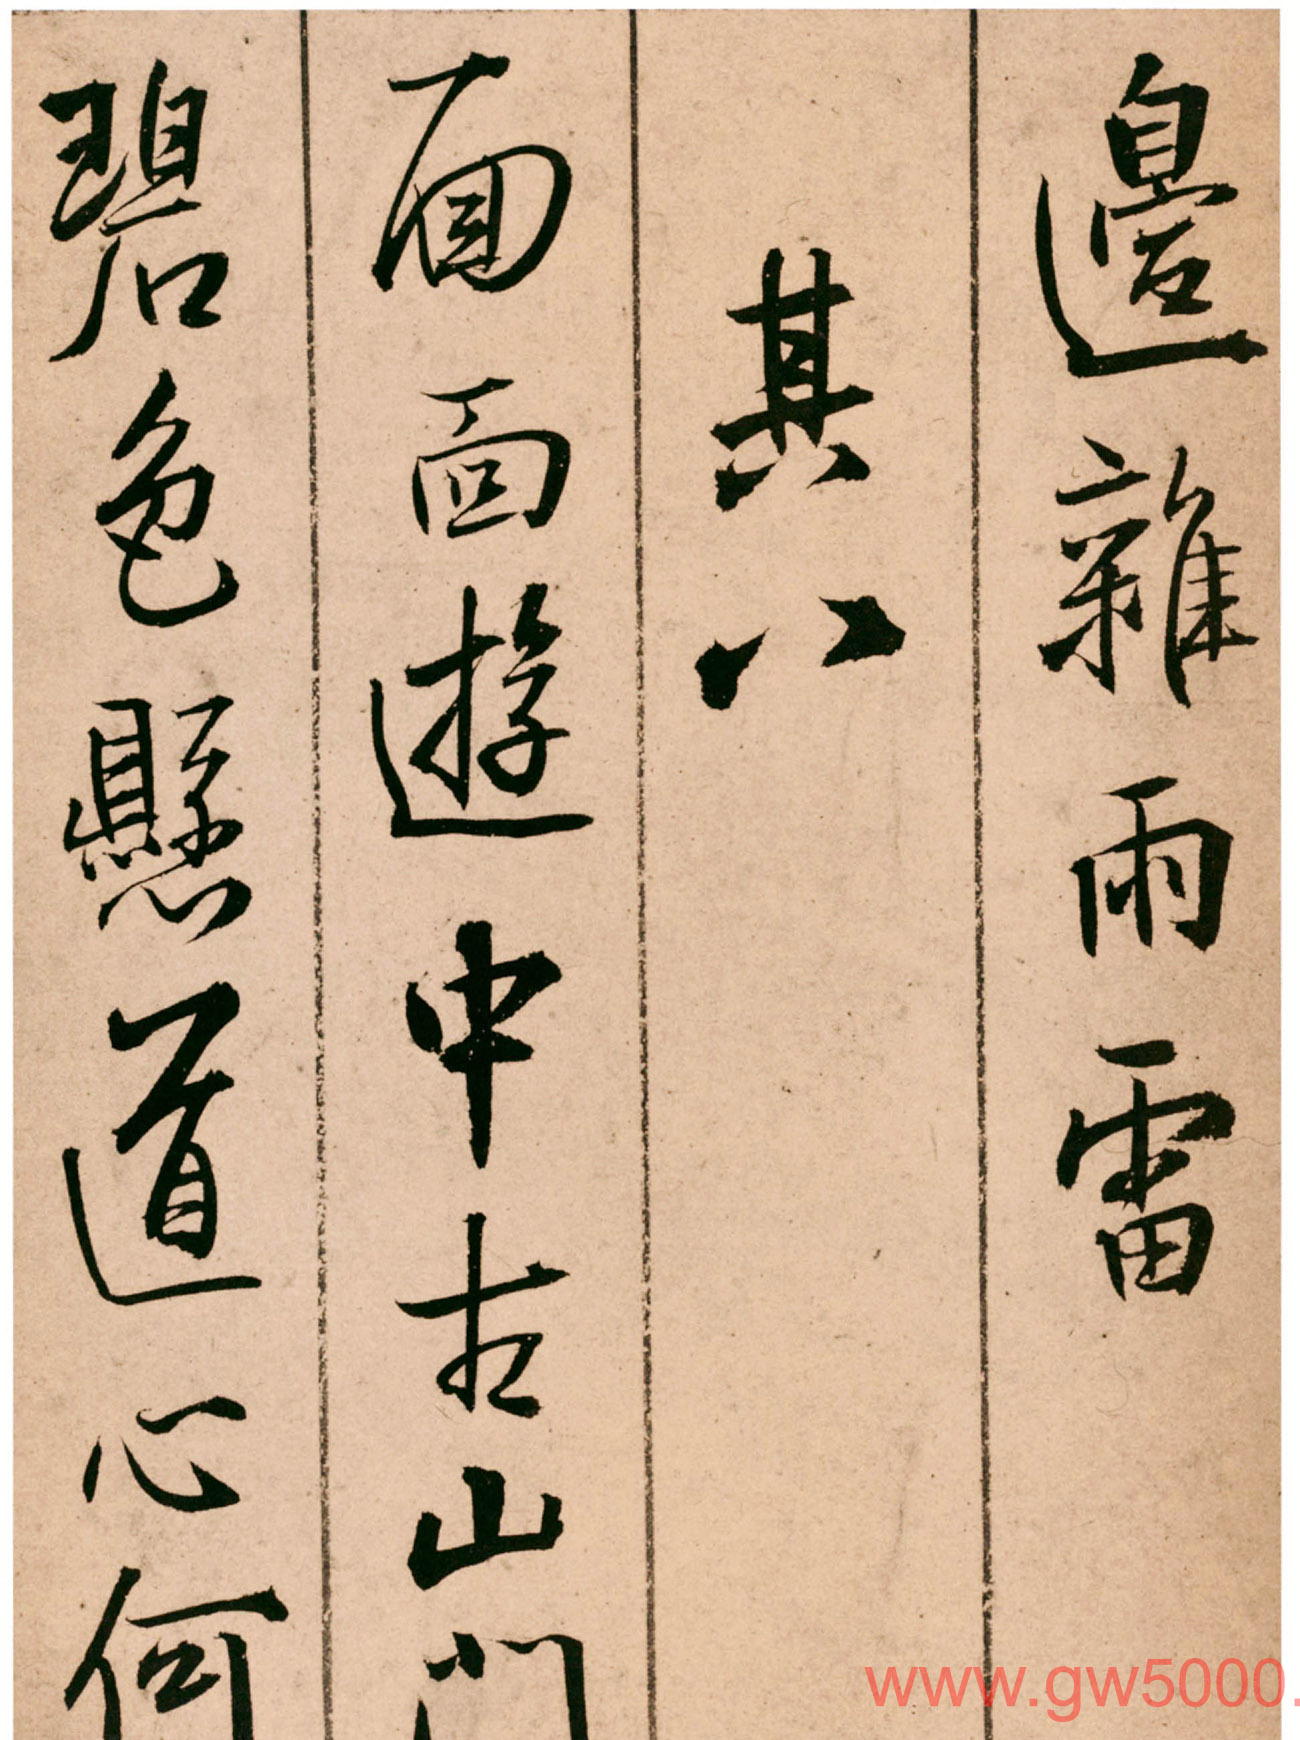 邊雜雨雷
其八
面面遊中古山門
碧色懸道心何
www.gw5000.